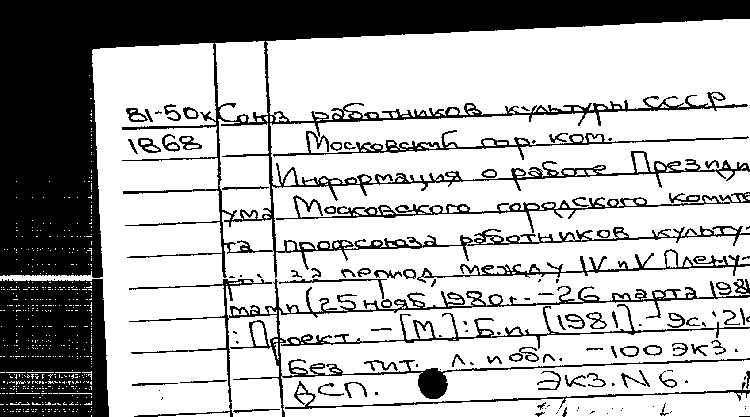 81-50к Союз работников культуры СССР
1868 Московский гор. ком.
Информация о работе Президи
ума Московского городского комите
та профсоюза работников культу-
ры за период между IV и V Плену-
мами (25 нояб. 1980 г. - 26 марта 1981
: Проект. - [М.] : Б.и., [1981]. - 9с.; 2
Без тит. л. и обл. - 100 экз.
ДСП. Экз. N 6.